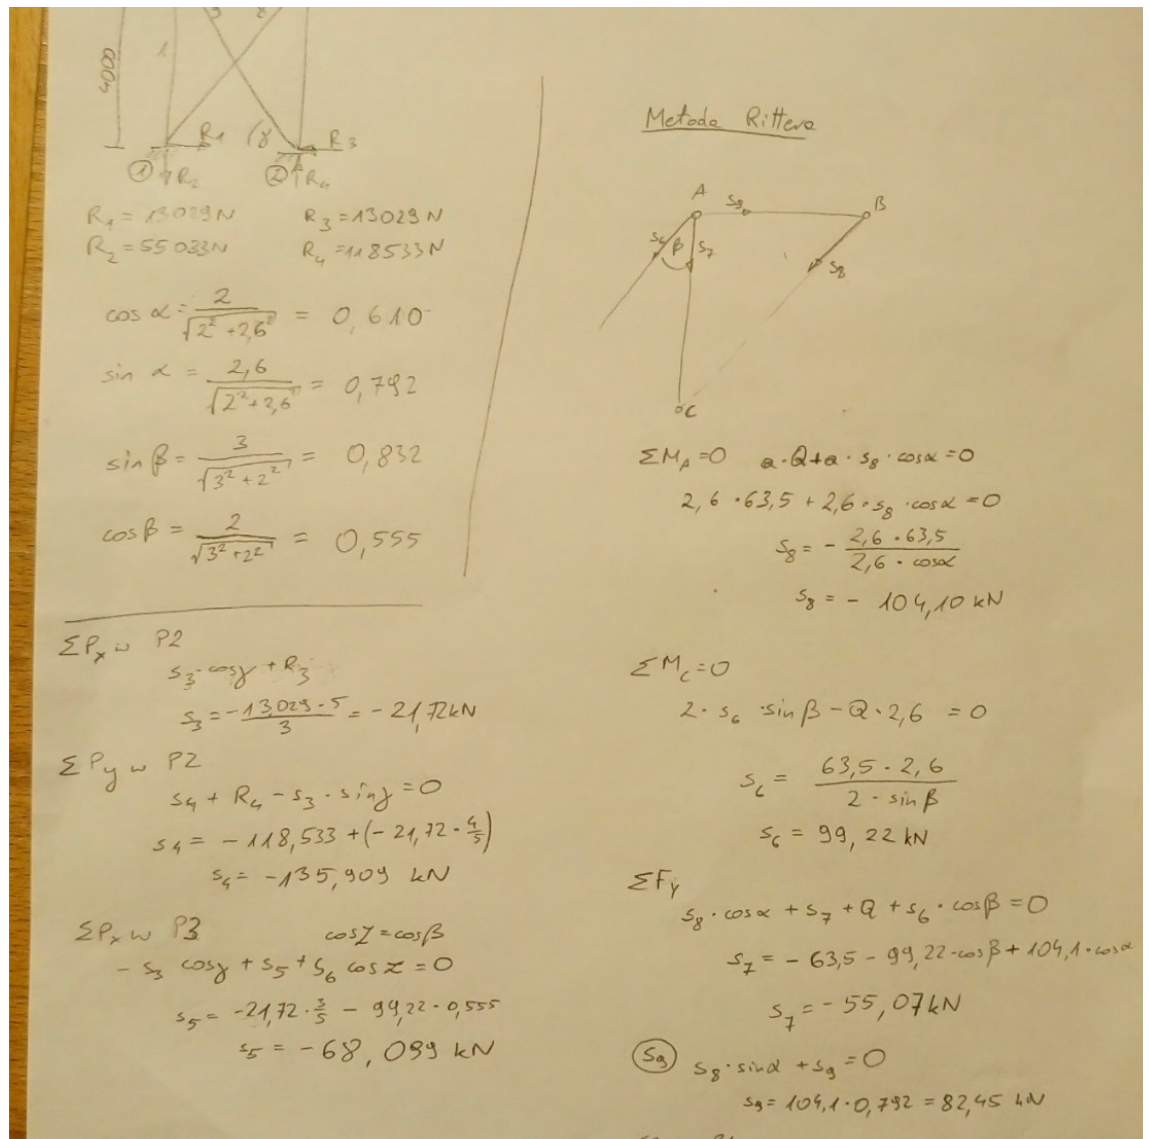 4000
1
R1
γ
R3
1
R2
2
R4
R₁ = 13029N
R₃ = 13029N
R₂ = 55033N
R₄ = 118533N
cos α = 2/√(2²+2,6²) = 0,610
sin α = 2,6/√(2²+2,6²) = 0,792
sin β = 3/√(3²+2²) = 0,832
cos β = 2/√(3²+2²) = 0,555
ΣPx w P2
S₃·cosγ + R₃
S₃ = -13,029·5/3 = -21,72kN
ΣPy w P2
S₄ + R₄ - S₃·sinγ = 0
S₄ = -118,533 + (-21,72·4/5)
S₄ = -135,909 kN
ΣPx w P3
cosZ = cosβ
-S₃ cosγ + S₅ + S₆ cosZ = 0
S₅ = -21,72·3/5 - 99,22·0,555
S₅ = -68,099 kN
Metoda Rittera
A
S₉
B
S₆
β
S₇
S₈
C
ΣM_A = 0 a·Q+a·S₈·cosα = 0
2,6·63,5 + 2,6·S₈·cosα = 0
S₈ = - 2,6·63,5/2,6·cosα
S₈ = - 104,10 kN
ΣM_C = 0
2·S₆·sinβ - Q·2,6 = 0
S₆ = 63,5·2,6/2·sinβ
S₆ = 99,22 kN
ΣFy
S₈·cosα + S₇ + Q + S₆·cosβ = 0
S₇ = -63,5 - 99,22·cosβ + 104,1·cosα
S₇ = -55,07kN
S₉ S₈·sinα + S₉ = 0
S₉ = 104,1·0,792 = 82,45 kN